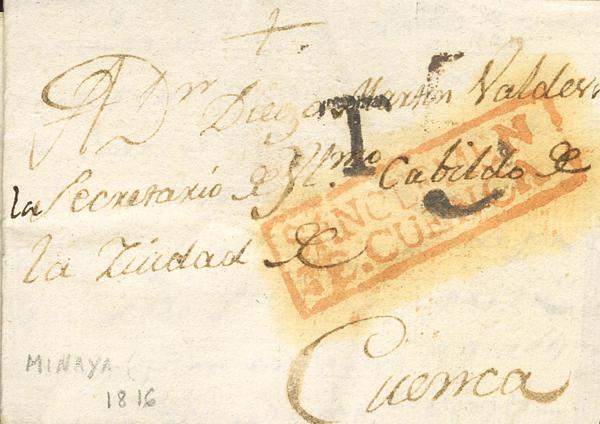 A Dn Diego Martin Valdev
la Secretario de Yl.mo Cabildo de
la Ziudad de
Cuenca
E.CUENCA
MINAYA (
1816